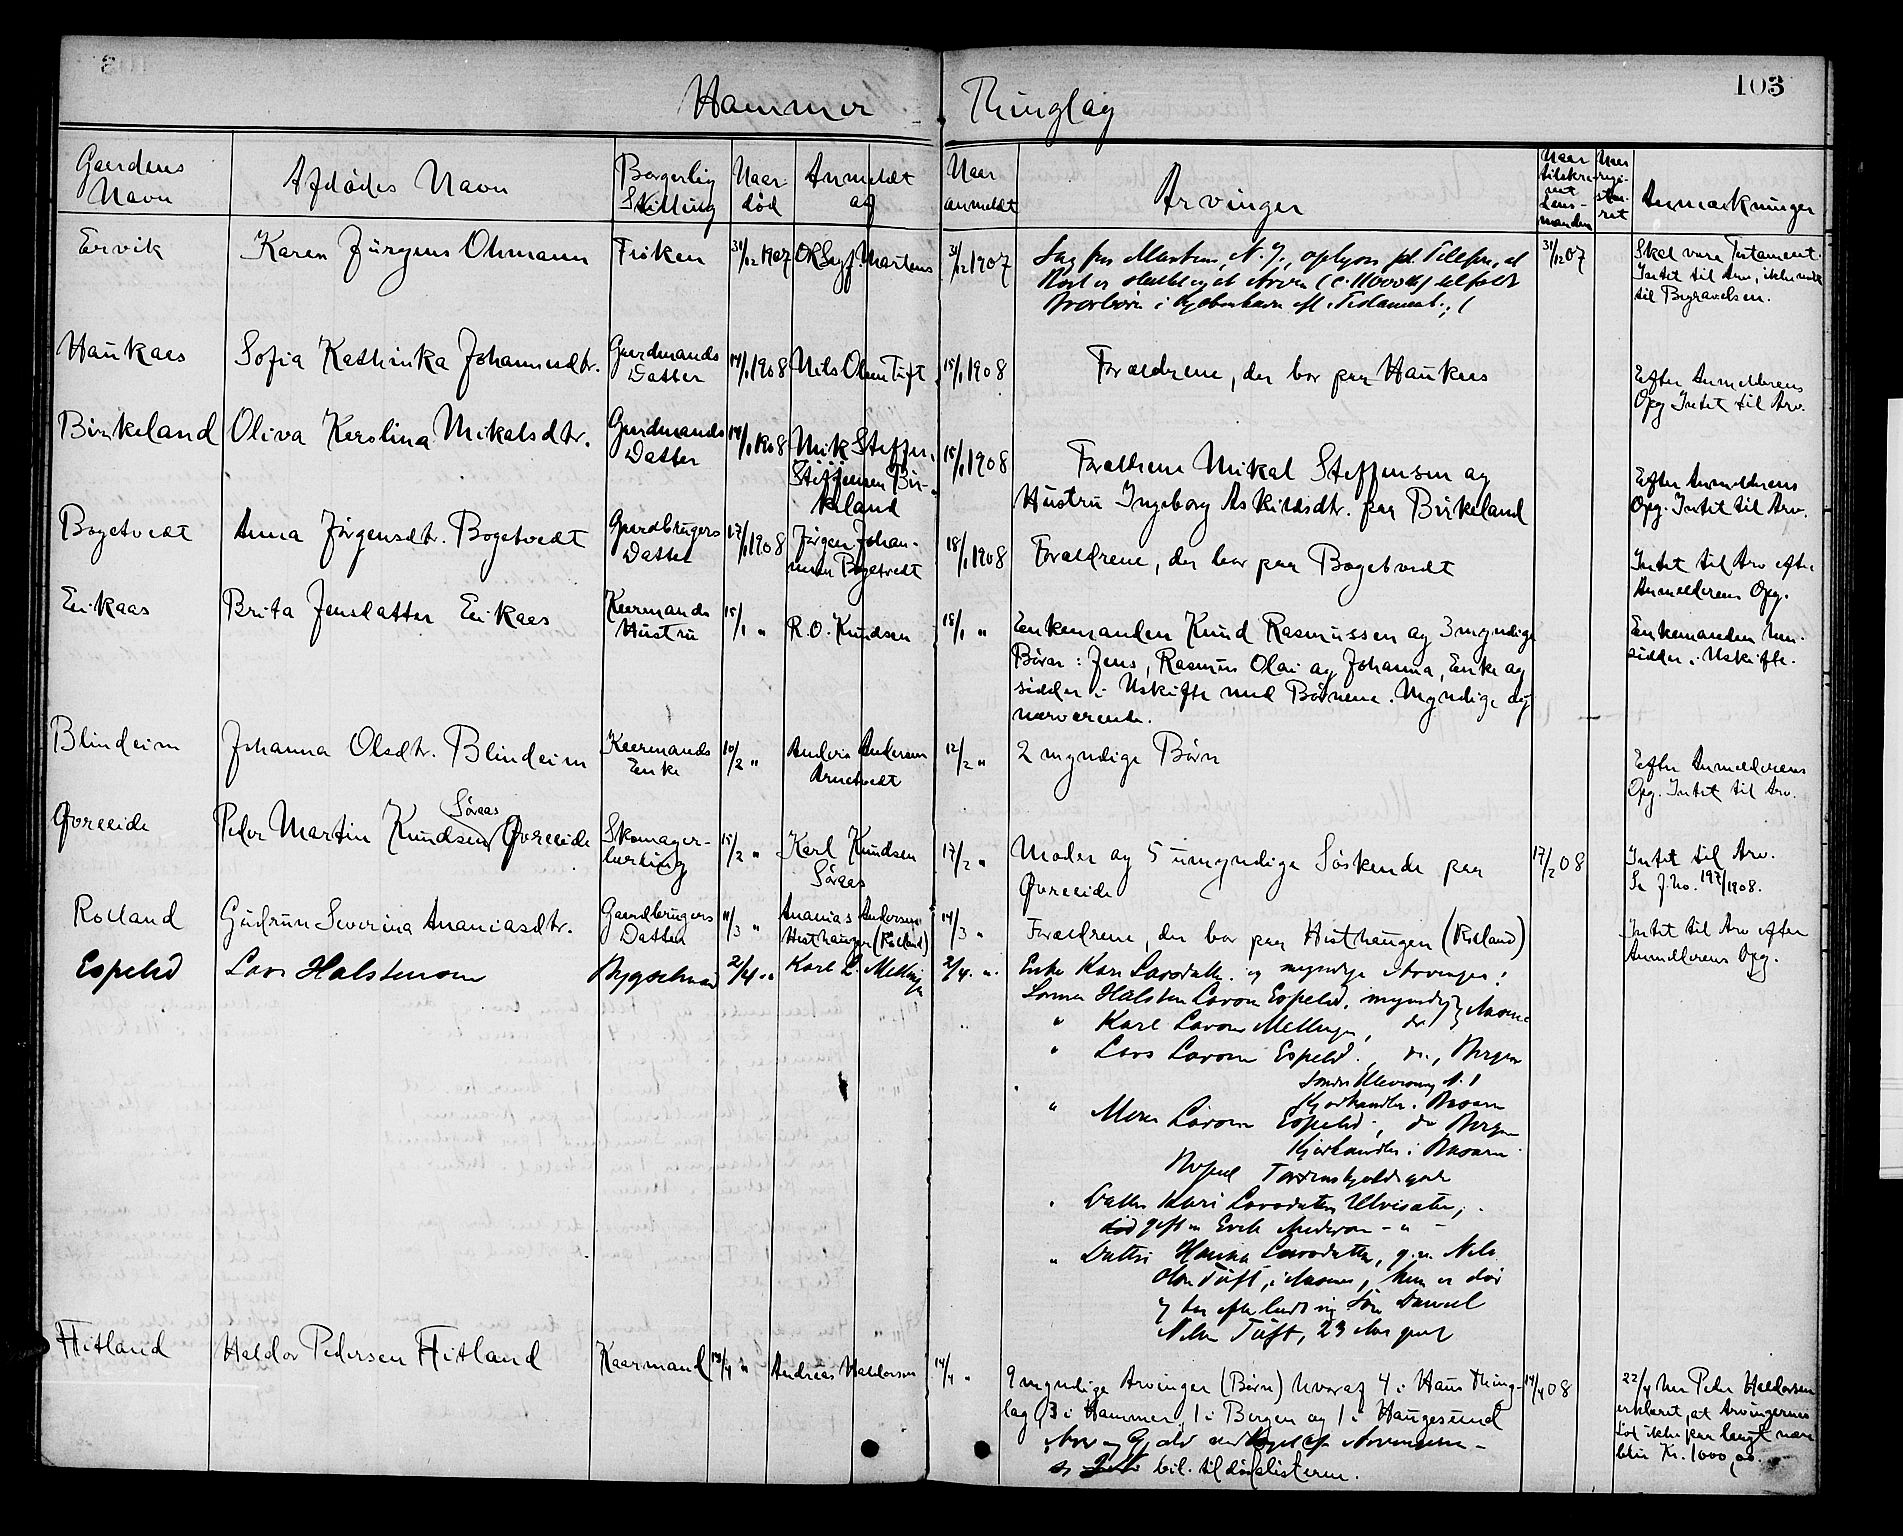 103
Hammer Thinglag
Gaardens Navn
Afdødes Navn
Borgerlig Stilling
Naar død
Anmeldt af
Naar anmeldt
Arvinger
Naar tilskrevet Lensmanden
Naar regi-streret
Anmærkninger
Ervik
Karen Jürgens Ohmann
Frøken
31/12 1907
Martens
31/12 1907
31/12 07
Skal være Testament.
Intet til Arv, ikke nok
til Begravelsen.
Haukaas
Sofia Kathinka Johannesdtr.
Gaardmands Datter
14/1 1908
Nils Olsen Tuft
15/1 1908
Forældrene, der bor paa Haukaas
Efter Anmelderens
Opg Intet til Arv.
Birkeland
Oliva Karolina Mikalsdtr.
Gaardmands Datter
14/1 1908
Mik Steffen.
Steffensen Bir-
keland
15/1 1908
Forældrene Mikal Steffensen og
Hustru Ingeborg Askildsdtr. paa Birkeland
Efter Anmelderens
Opg. Intet til Arv.
Bogetvedt
Anna Jørgensdtr. Bogetvedt
Gaardbrugers Datter
17/1 1908
Jørgen Johan-
nesen Bogetvedt
18/1 1908
Forældrene, der bor paa Bogetvedt
Intet til Arv efter
Anmelderens Opg.
Eikaas
Brita Jensdatter Eikaas
Kaarmands Hustru
15/1 "
R. O. Knudsen
18/1 "
Enkemanden Knud Rasmussen og 3 myndige
Børn: Jens, Rasmus Olai og Johanna, Enkem
sidder i Uskifte med Børnene. Myndige og
nærværende.
Enkemanden hen-
sidder i Uskifte.
Blindeim
Johanna Olsdtr. Blindeim
Kaarmands Enke
10/2 "
Anders Andersen
Arnetvedt
12/2 "
2 myndige Børn
Efter Anmelderens
Opg. Intet til Arv.
Øvreeide
Søraas
Peder Martin Knudsen Øvreeide
Skomager-
lærling
15/2 "
Karl Knudsen
Søraas
17/2 "
Moder og 5 umyndige Søskende paa
Øvreeide
17/2 08
Intet til Arv.
Se J. No. 197/1908.
Rolland
Gudrun Severina Ananiasdtr.
Gaardbrugers Datter
11/3 "
Ananias Andersen
Hesthaugen (Rolland)
14/3 "
Forældrene, der bor paa Hesthaugen (Rolland)
Intet til Arv efter
Anmelderens Opg.
Espelid
Lars Halstensen
Bygselmand
2/4 "
Karl L. Mellingen
2/4 "
Enke Kari Larsdatter og myndige Arvinger:
Sønnen Halsten Larsen Espelid, myndig, Aasene
" Karl Larsen Mellingen, do
" Lars Larsen Espelid, do., Bergen
Kjødhandler i Basarn
" Mons Larsen Espelid, do Bergen
Kjødhandler i Basarn
Datter Kari Larsdatter Ulvesæter,
gift m Erik Andersen - " -
" Datter Hanna Larsdatter, g. m. Nils
Olsen Tuft, i Aasene, hun er død
og har efterladt sig Søn Daniel
Nilsen Tuft, 23 Aar gml
Flitland
Haldor Pedersen Flitland
Kaarmand
13/4 "
Andreas Haldorsen
14/4 "
9 myndige Arvinger (Børn) hvoraf 4 i Haus Thing-
lag, 3 i Hammer, 1 i Bergen og 1 i Haugesund
Arv og Gjæld
bil. til dødslisterne.
14/4 08
22/4 har Peder Haldorsen
erklæret, at Arvingernes
Lod ikke paa langt nær
blir Kr. 1000,00.